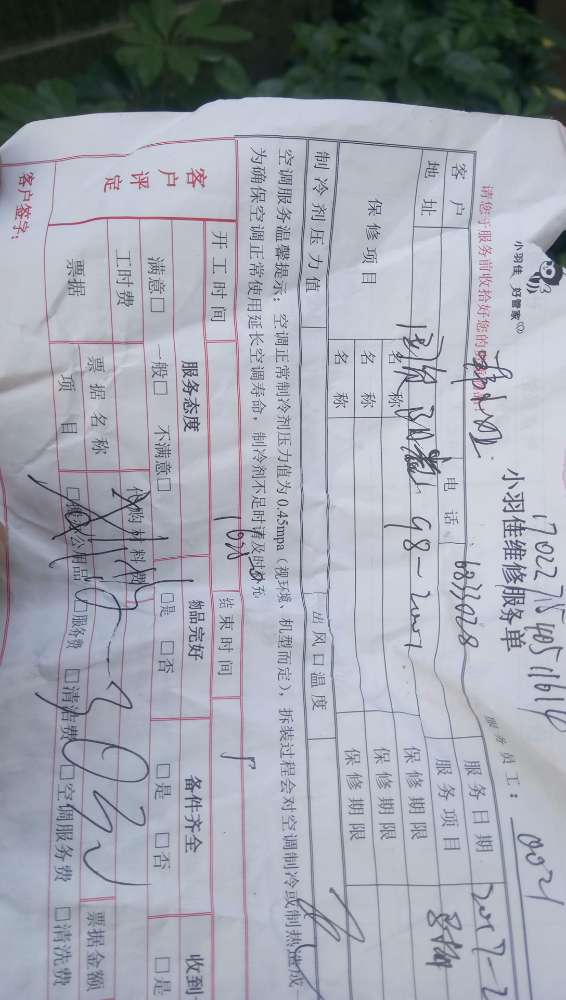 小羽佳 好管家®
17022754051161
小羽佳维修服务单
请您于服务前收拾好您的
服务员工: 0021
客户
电话 6833028
服务日期 2017-2
地址
98-2001
服务项目
保修项目
名称
保修期限
名称
保修期限
名称
保修期限
制冷剂压力值
出风口温度
空调服务温馨提示:空调正常制冷剂压力值为0.45mpa(视环境、机型而定),拆装过程会对空调制冷或制热造成一
为确保空调正常使用延长空调寿命,制冷剂不足时请及时补充
开工时间
结束时间
客户评定
服务态度
物品完好
备件齐全
收到
满意□ 一般□ 不满意□
□是 □否
□是 □否
□是
工时费
代购材料费
票据
票据名称
票据金额
项目
□服务费 □清洁费 □空调服务费 □清洗费
客户签字: